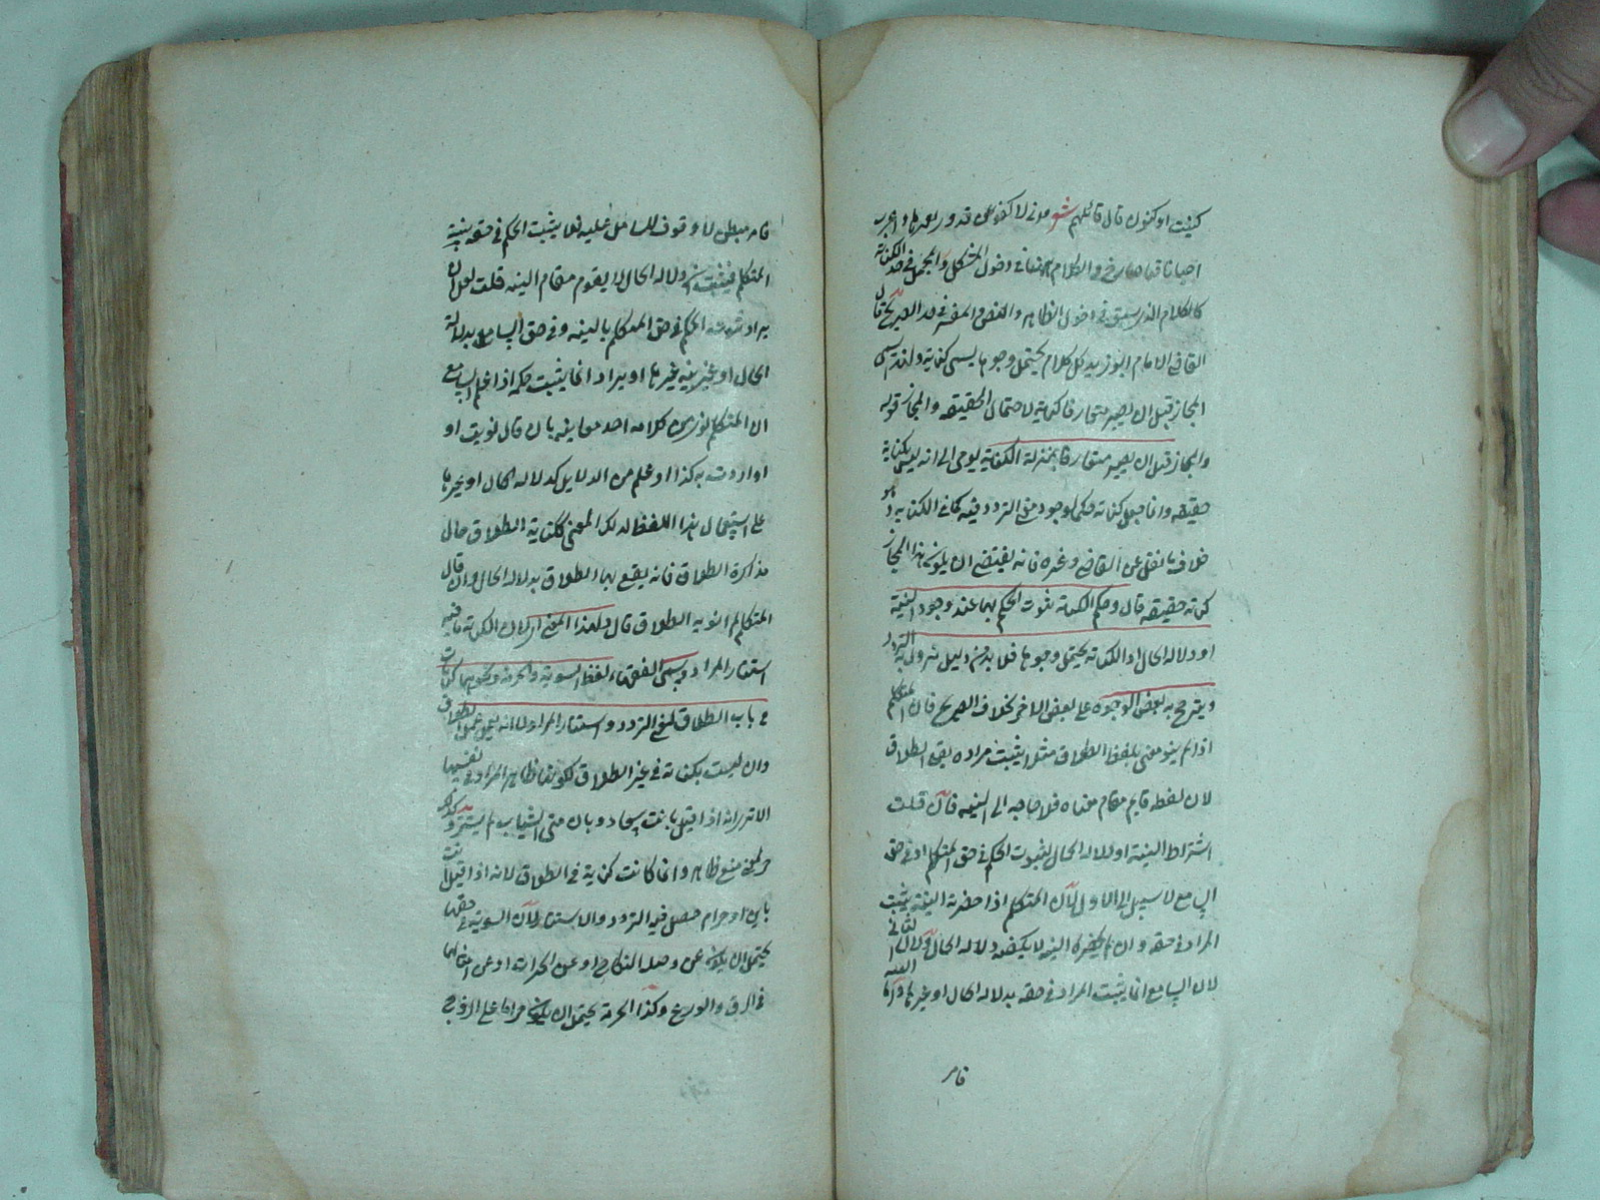 كنيت او كنوت قال قائلهم شعر لاكنو عن قدور بغيرها واعرب
احيانا فاصارح والكلام
كالكلام الذي سبق في دخول الظاهر والنص والمفسر في حد الصريح قال
القاضي الامام ابو زيد كل كلام يحتمل وجوها يسمى كناية ولهذا سمى
المجاز قبل ان يصير متعارفا كناية لاحتمال الحقيقة والمجاز قوله
والمجاز قبل ان يصير متعارفا بمنزلة الكناية يومى الى انه ليس بكناية
حقيقة وانما جعل كناية حكما لوجود معنى التردد فيه كما في الكناية وهو
خلاف ما نقل عن القاضي وغيره فانه يقتضي ان يكون هذا المجاز
كناية حقيقة قال وحكم الكناية ثبوت الحكم بها عند وجود النية
او دلالة الحال اذ الكناية يحتمل وجوها فلا بد من دليل يزول به التردد
ويترجح به بعض الوجوه على بعض الاخر بخلاف الصريح فان المتكلم
اذا لم ينو معنى بلفظ الطلاق مثلا يثبت مراده يقع الطلاق
لان لفظه قايم مقام معناه فلا حاجة الى النية فان قلت
اشتراط النية او دلالة الحال لثبوت الحكم في حق المتكلم او في حق
السامع لا سبيل الى الاول لان المتكلم اذا حضرته النية يثبت
المراد في حقه وان لم يحضره النية لا يكفيه دلالة الحال ولا الى الثاني
لان السامع انما يثبت المراد في حقه بدلالة الحال او غيرها و النية
فامر
فامر مبطن لا وقوف للسامع عليه فلا يثبت الحكم في حقه بنية
المتكلم فيثبت ان دلالة الحال لا يقوم مقام النية قلت لعل ان
يراد ثبوت الحكم في حق المتكلم بالنية وفي حق السامع بدلالة
الحال او غير نية غيرها او يراد انما يثبت حكمه اذا علم السامع
ان المتكلم نوى من كلامه احد معاينه بان قال نويت او
او اردت به كذا او علم من الدلايل كدلالة الحال او غيرها
على استعمال هذا اللفظ لذلك المعنى ككناية الطلاق حال
مذاكرة الطلاق فانه يقع بها الطلاق بدلالة الحال وان قال
المتكلم لم انو به الطلاق قال ولهذا المعنى اي لان الكناية ما فيه
استتار المراد ويسمى الفقهاء لفظ البينونة والحرمة ونحوهما كنايات
في باب الطلاق لمعنى التردد واستتار المراد لا انه يعمل عمل الطلاق
وان ليست بكناية في غير الطلاق لكونها ظاهر المراد في نفسها
الا ترى انه اذا قيل بانت سعاد وبان متى الشباب لم يستتر وكذا هو
حرام معنى ظاهر وانما كانت كناية في الطلاق لانه اذا قيل انت
باين او حرام حصل فيه التردد والاستتار لان البينونة في حقها
يحتمل ان يكون عن وصلة النكاح او عن الخيرات او عن
في الرق والورع وكذا الحرمة يحتمل ان يكون حراما على الزوج